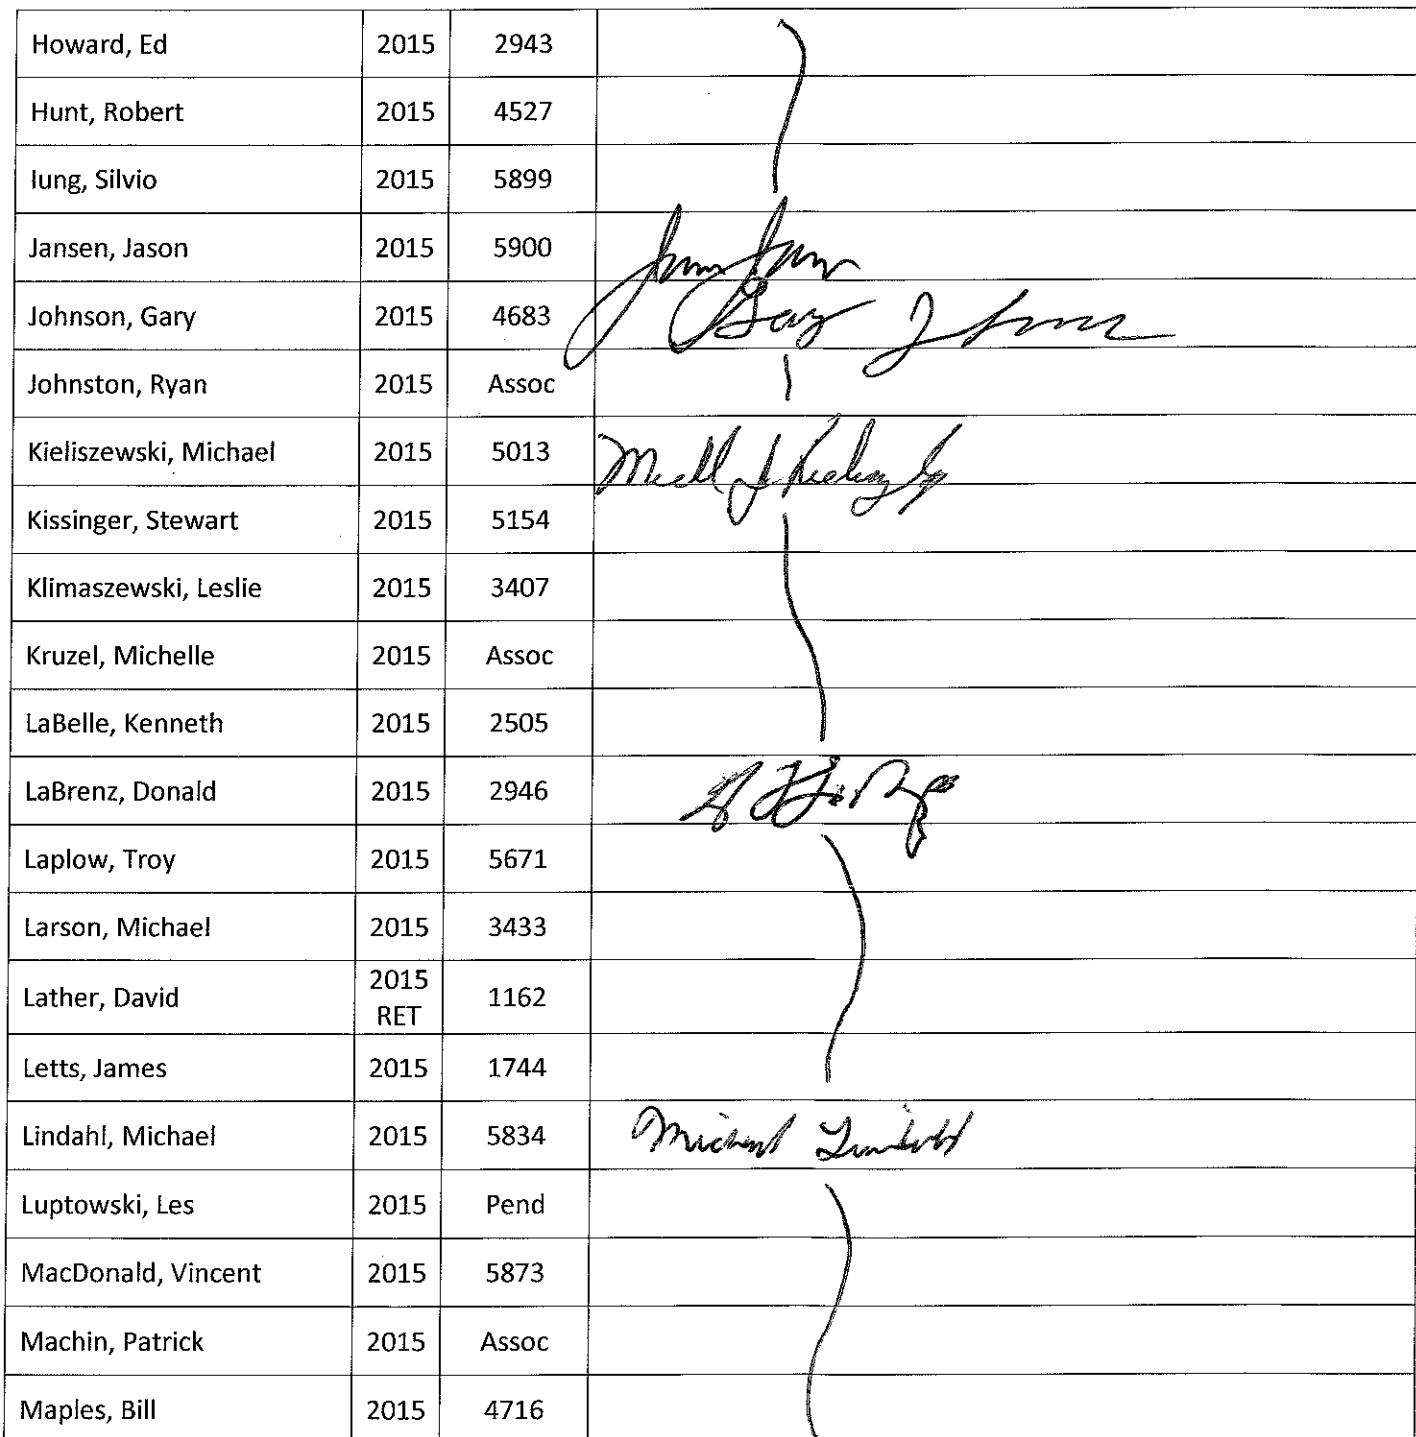 Howard, Ed 2015 2943
Hunt, Robert 2015 4527
Iung, Silvio 2015 5899
Jansen, Jason 2015 5900
Johnson, Gary 2015 4683 Gary Johnson
Johnston, Ryan 2015 Assoc
Kieliszewski, Michael 2015 5013
Kissinger, Stewart 2015 5154
Klimaszewski, Leslie 2015 3407
Kruzel, Michelle 2015 Assoc
LaBelle, Kenneth 2015 2505
LaBrenz, Donald 2015 2946
Laplow, Troy 2015 5671
Larson, Michael 2015 3433
Lather, David 2015 RET 1162
Letts, James 2015 1744
Lindahl, Michael 2015 5834 Michael Lindahl
Luptowski, Les 2015 Pend
MacDonald, Vincent 2015 5873
Machin, Patrick 2015 Assoc
Maples, Bill 2015 4716